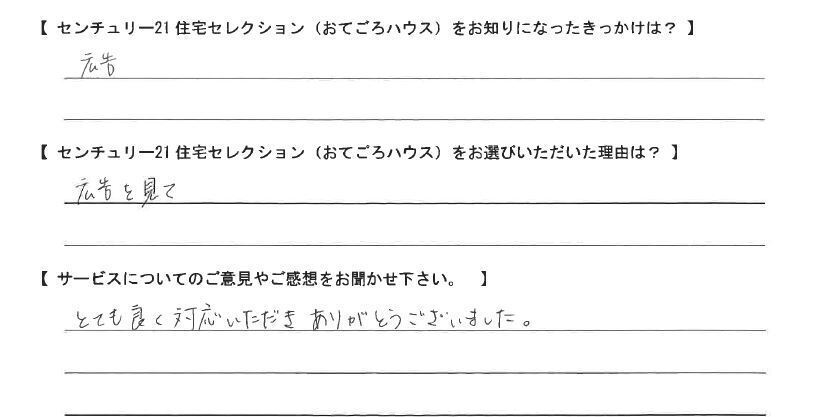 【 センチュリー21 住宅セレクション（おてごろハウス）をお知りになったきっかけは？ 】
広告
【 センチュリー21 住宅セレクション（おてごろハウス）をお選びいただいた理由は？ 】
広告を見て
【 サービスについてのご意見やご感想をお聞かせ下さい。 】
とても良く対応いただき ありがとうございました。